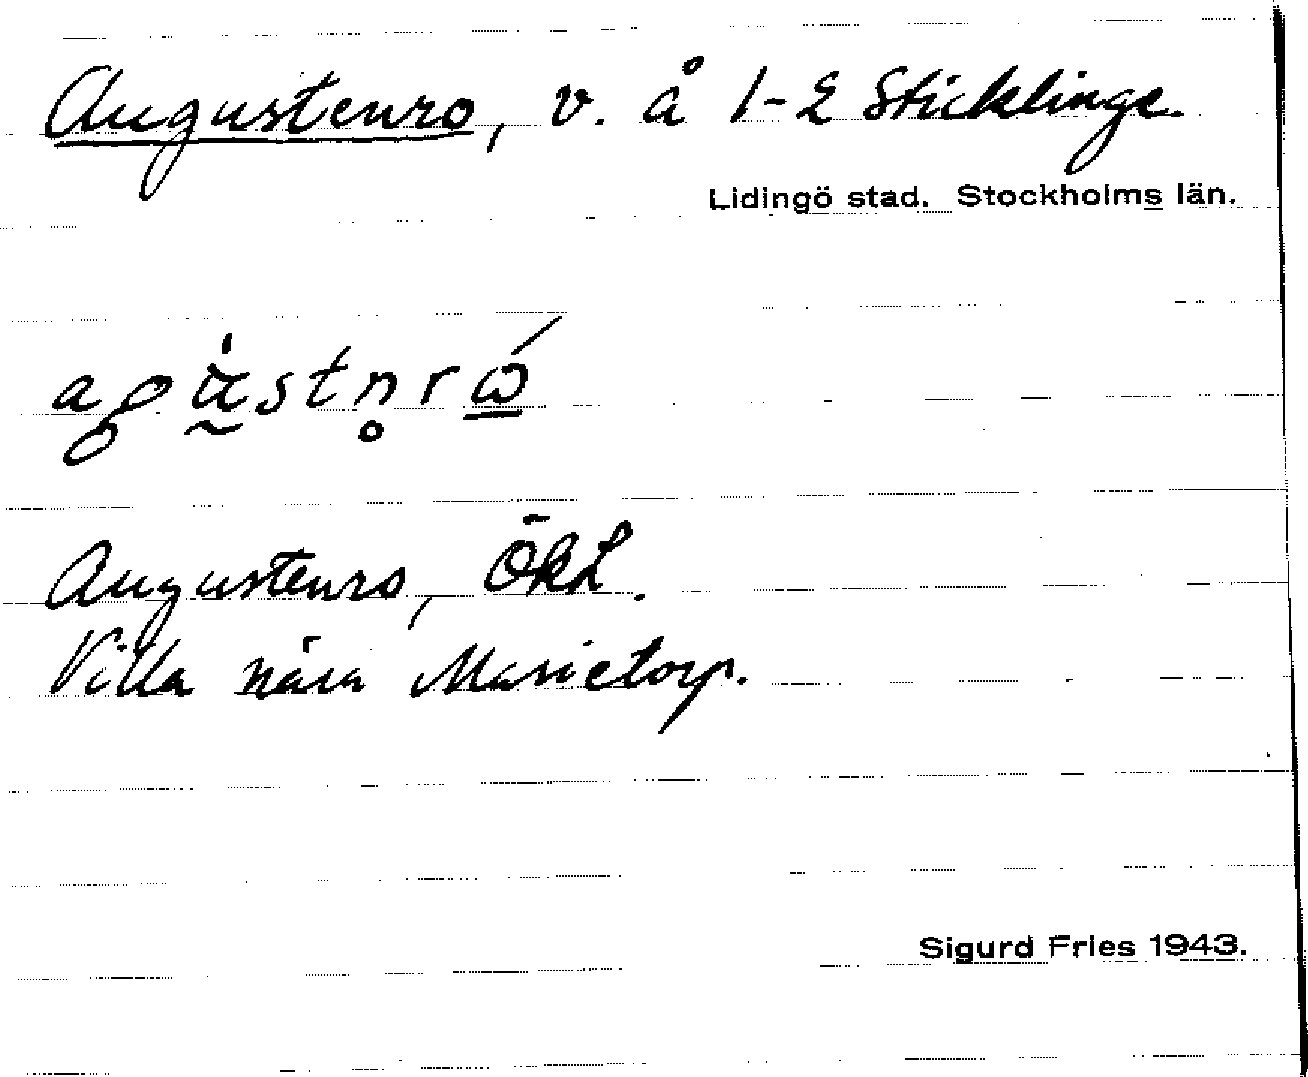 Augustenro, v. å 1-2 Sticklinge.
Lidingö stad. Stockholms län.
Augustenro, ÖkL.
Villa nära Marietorp.
Sigurd Fries 1943.